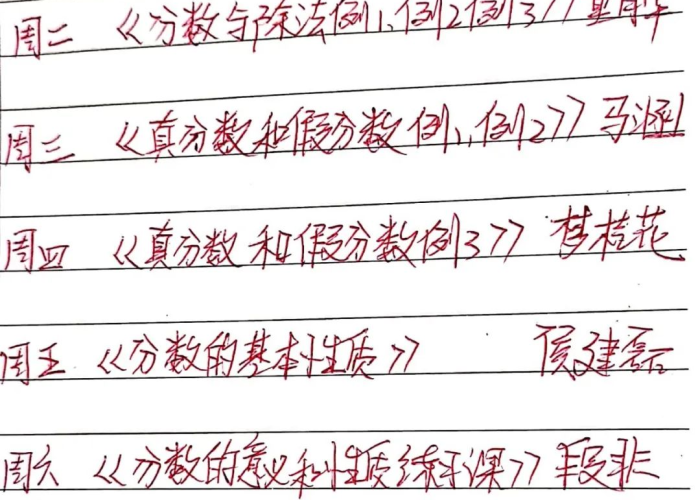 周二 《分数与除法例1、例2例3》
周三 《真分数和假分数例1、例2》 马涵
周四 《真分数和假分数例3》 梦桂花
周五 《分数的基本性质》 侯建磊
周六 《分数的意义和性质练习课》 段非